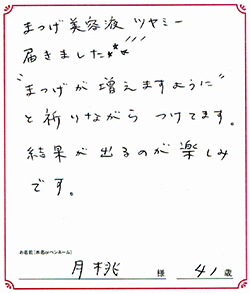 まつげ美容液 ツヤミー
届きました
"まつげが増えますように"
と祈りながら つけてます。
結果が出るのが楽しみ
です。
お名前(本名orペンネーム)
月桃 様 41歳